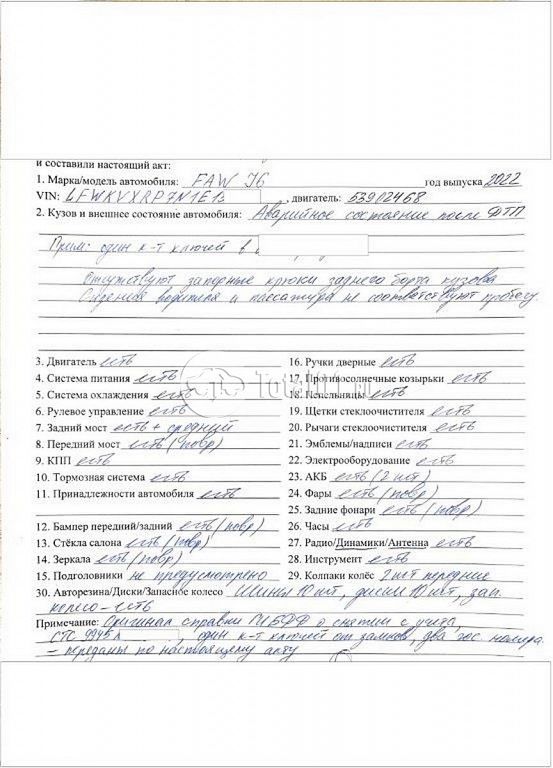 и составили настоящий акт:
1. Марка/модель автомобиля: FAW J6 год выпуска 2022
VIN: LFWKVXRP7N1E1 , двигатель: 53902468
2. Кузов и внешнее состояние автомобиля: Аварийное состояние после ДТП
Прим: один к-т ключей в
Отсутствуют запорные крюки заднего борта кузова
Сиденья водителя и пассажира не соответствуют пробегу.
3. Двигатель есть
4. Система питания есть
5. Система охлаждения есть
6. Рулевое управление есть
7. Задний мост есть + средний
8. Передний мост есть (повр)
9. КПП есть
10. Тормозная система есть
11. Принадлежности автомобиля есть
12. Бампер передний/задний есть (повр)
13. Стёкла салона есть (повр)
14. Зеркала есть (повр)
15. Подголовники не предусмотрено
16. Ручки дверные есть
17. Противосолнечные козырьки есть
18. Пепельницы есть
19. Щетки стеклоочистителя есть
20. Рычаги стеклоочистителя есть
21. Эмблемы/надписи есть
22. Электрооборудование есть
23. АКБ есть (2 шт)
24. Фары есть (повр)
25. Задние фонари есть (повр)
26. Часы есть
27. Радио/Динамики/Антенна есть
28. Инструмент есть
29. Колпаки колёс 2 шт передние
30. Авторезина/Диски/Запасное колесо Шины 10 шт, диски 10 шт, зап.
колесо - есть
Примечание: Оригинал справки ГИБДД о снятии с учета,
СТС 9945 , один к-т ключей от замков, два гос. номера
- переданы по настоящему акту
Total01.ru